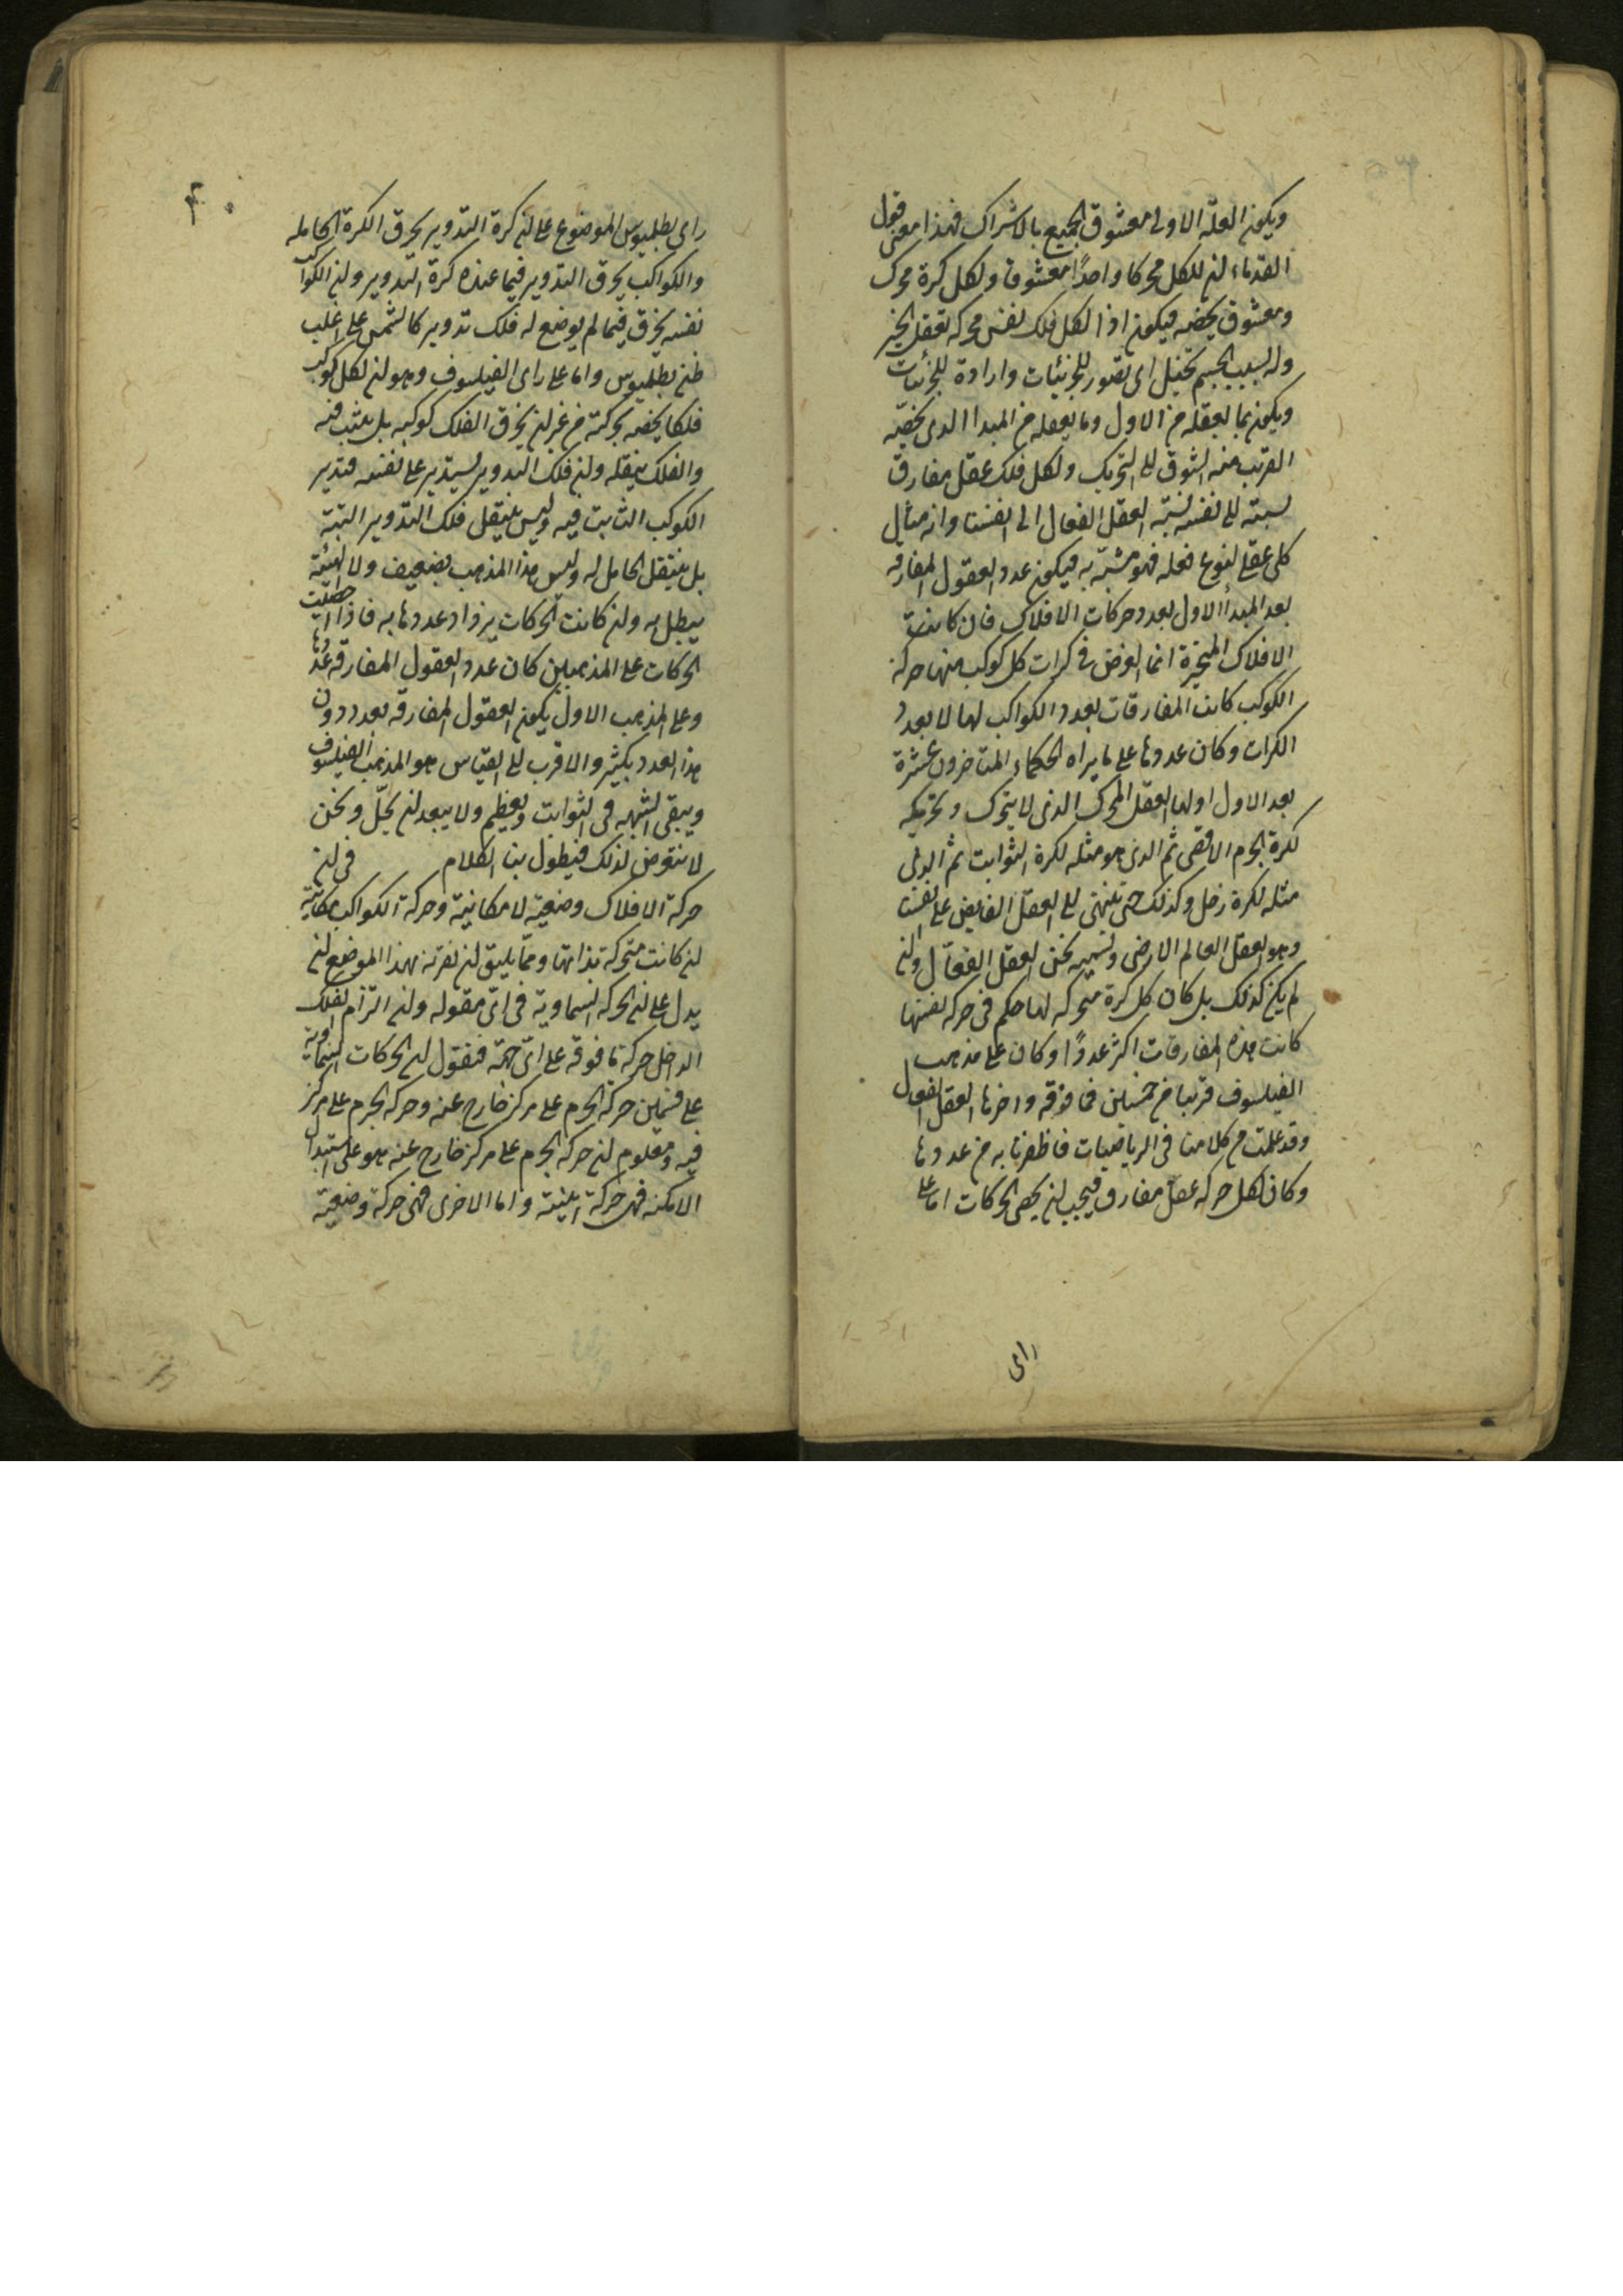 ويكون العلة الاولى معشوق الجميع بالاشراك فهذا معنى قول
القدماء ان للكل محركا واحدًا معشوقا ولكل كرة محرك
ومعشوق يخصه فيكون اذا لكل فلك نفس محركه تعقل الخير
وله بسبب الجسم تخيل اى تصور للجزئيات وارادة للجزئيات
ويكون بما يعقله من الاول وما يعقله من المبدا الذى يخصه
القريب منه الشوق الى التحريك ولكل فلك عقل مفارق
نسبته الى نفسه نسبة العقل الفعال الى انفسنا وانه مثال
كلى عقلى لنوع فعله فهو متشبه به فيكون عدد العقول المفارقه
بعد المبدأ الاول بعدد حركات الافلاك فان كانت
الافلاك المتحيزة انما الغرض فى كرات كل كوكب منها حركة
الكوكب كانت المفارقات بعدد الكواكب لها لا بعدد
الكرات وكان عددها على ما يراه الحكماء المتاخرون عشرة
بعد الاول اولها العقل المحرك الذى لا يتحرك وتحريكه
لكرة الجرم الاقصى ثم الذى هو مثله لكرة الثوابت ثم الذى
مثله لكرة زحل وكذلك حتى ينتهى الى العقل الفايض على انفسنا
وهو العقل العالم الارضى ونسميه نحن العقل الفعال وان
لم يكن كذلك بل كان كل كرة متحركه لها حكم فى حركه نفسها
كانت هذه المفارقات اكثر عددًا وكان على مذهب
الفيلسوف قريبا من خمسين فما فوقه واخرها العقل الفعال
وقد علمت من كلامنا فى الرياضيات ما ظفرنا به من عددها
وكان لكل حركه عقل مفارق فيجب ان يحصى الحركات اما على
راى
٤٠
راى بطلميوس الموضوع على ان كرة التدوير يخرق الكرة الحامله
والكواكب يخرق التدوير فيما عنده كرة التدوير وان الكواكب
نفسه يخرق فيما لم يوضع له فلك تدوير كالشمس على اغلب
ظن بطلميوس واما على راى الفيلسوف وهو ان لكل كوكب
فلكا يخصه يحركته من غير ان يخرق الفلك كوكبه بل يثبت فيه
والفلك ينقله وان فلك التدوير يستدير على نفسه فيدير
الكوكب الثابت فيه وليس ينتقل فلك التدوير البتة
بل ينتقل الحامل له وليس هذا المذهب بضعيف ولا الهيئة
يبطل به وان كانت الحركات يزداد عددها به فاذا احصيت
الحركات على المذهبين كان عدد العقول المفارقه عددها
وعلى المذهب الاول يكون العقول المفارقه بعدد دون
هذا العدد بكثير والاقرب الى القياس هو المذهب الفيلسوف
ويبقى الشبهه فى الثوابت ويعظم ولا يبعد ان يحل ونحن
لا نتعرض لذلك فيطول بنا الكلام فى ان
حركة الافلاك وضعية لا مكانية وحركة الكواكب مكانية
ان كانت متحركة بذاتها ومما يليق ان نقرنه بهذا الموضع ان
يدل على ان الحركه السماوية فى اى مقوله وان التزام الفلك
الداخل حركة ما فوقه على اى جهة فنقول ان الحركات السماوية
على قسمين حركه الجرم على مركز خارج عنه وحركه الجرم على مركز
فيه ومعلوم ان حركه الجرم على مركز خارج عنه هو على استبدال
الامكنه فهى حركة اينية واما الاخرى فهى حركة وضعية